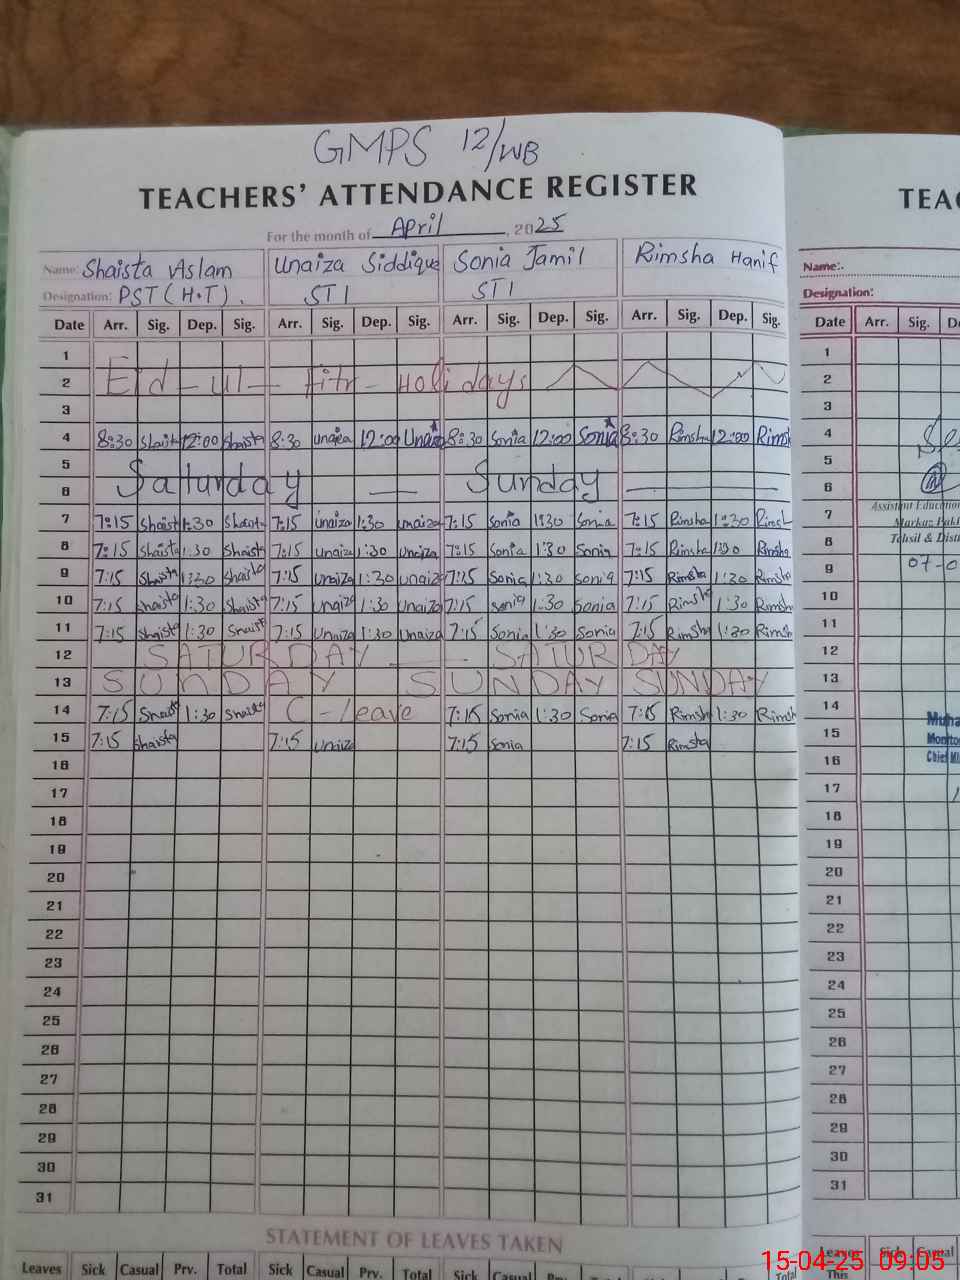 GMPS 12/WB
TEACHERS' ATTENDANCE REGISTER
For the month of April, 2025
Name: Shaista Aslam Unaiza Siddique Sonia Jamil Rimsha Hanif
Designation: PST (H.T). STI STI
Date Arr. Sig. Dep. Sig. Arr. Sig. Dep. Sig. Arr. Sig. Dep. Sig. Arr. Sig. Dep. Sig.
1
2 Eid-ul-Fitr-Holidays
3
4 8:30 Shaist 12:00 Shaista 8:30 unaiza 12:00 Unaiza 8:30 Sonia 12:00 Sonia 8:30 Rimsha 12:00 Rimsh
5
6 Satturday — Sunday
7 7:15 Shaist 1:30 Shaista 7:15 unaiza 1:30 unaiza 7:15 Sonia 1:30 Sonia 7:15 Rimsha 1:30 Rimsh
8 7:15 Shaista 1:30 Shaista 7:15 unaiza 1:30 Unaiza 7:15 Sonia 1:30 Sonia 7:15 Rimsha 1:30 Rimsha
9 7:15 Shaista 1:30 Shaista 7:15 unaiza 1:30 unaiza 7:15 Sonia 1:30 Sonia 7:15 Rimsha 1:30 Rimsha
10 7:15 Shaista 1:30 Shaista 7:15 unaiza 1:30 Unaiza 7:15 Sonia 1:30 Sonia 7:15 Rimsha 1:30 Rimsha
11 7:15 Shaista 1:30 Shaist 7:15 Unaiza 1:30 Unaiza 7:15 Sonia 1:30 Sonia 7:15 Rimsha 1:30 Rimsh
12 SATURDAY — SATURDAY
13 SUNDAY SUNDAY SUNDAY
14 7:15 Shaist 1:30 Shaista C-leave 7:15 Sonia 1:30 Sonia 7:15 Rimsh 1:30 Rimsh
15 7:15 Shaista 7:15 Unaiza 7:15 Sonia 7:15 Rimsha
16
17
18
19
20
21
22
23
24
25
26
27
28
29
30
31
STATEMENT OF LEAVES TAKEN
Leaves Sick Casual Prv. Total Sick Casual Prv. Total Sick Casual Total
TEAC
Name:.
Designation:
Date Arr. Sig. De
1
2
3
4
5
6
7 Assistant Education
Markaz
8 Tehsil & Dist
9 07-0
10
11
12
13
14 Muha
15 Monito
16 Chief Mi
17
18
19
20
21
22
23
24
25
26
27
28
29
30
31
Leaves Sick Casual
This
15-04-25 09:05